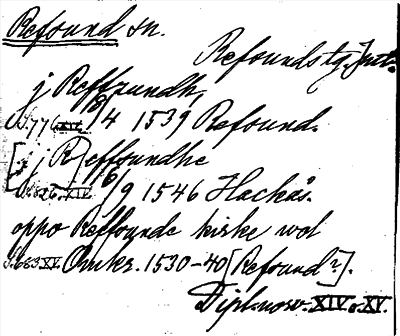 Refsund sn.
Refsunds tg. Jmtl.
j Reffzundh,
N. 776 XIV. 8/4 1539 Refsund.
[j R]effsundhe
N. 826. XIV. 6/9 1546 Hackås.
oppo Reffsunde kirke wol
N. 683 XV. Omkr. 1530-40 [Refsund?].
Dipl. norv. XIV o. XV.